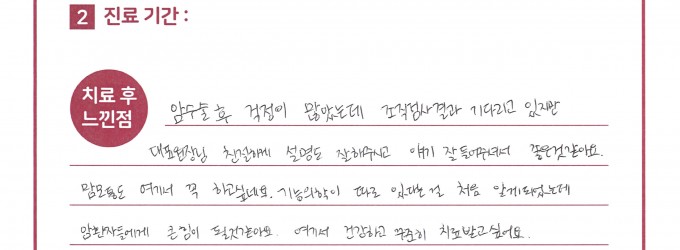 2 진료 기간 :
치료 후
느낀점
암수술 후 걱정이 많았는데 조직검사결과 기다리고 있지만
대표원장님 친절하게 설명도 잘해주시고 얘기 잘 들어주셔서 좋은것같아요.
맘모톰도 여기서 꼭 하고싶네요. 기능의학이 따로 있다는 걸 처음 알게되었는데
암환자들에게 큰힘이 될것같아요. 여기서 건강하고 꾸준히 치료받고싶어요.